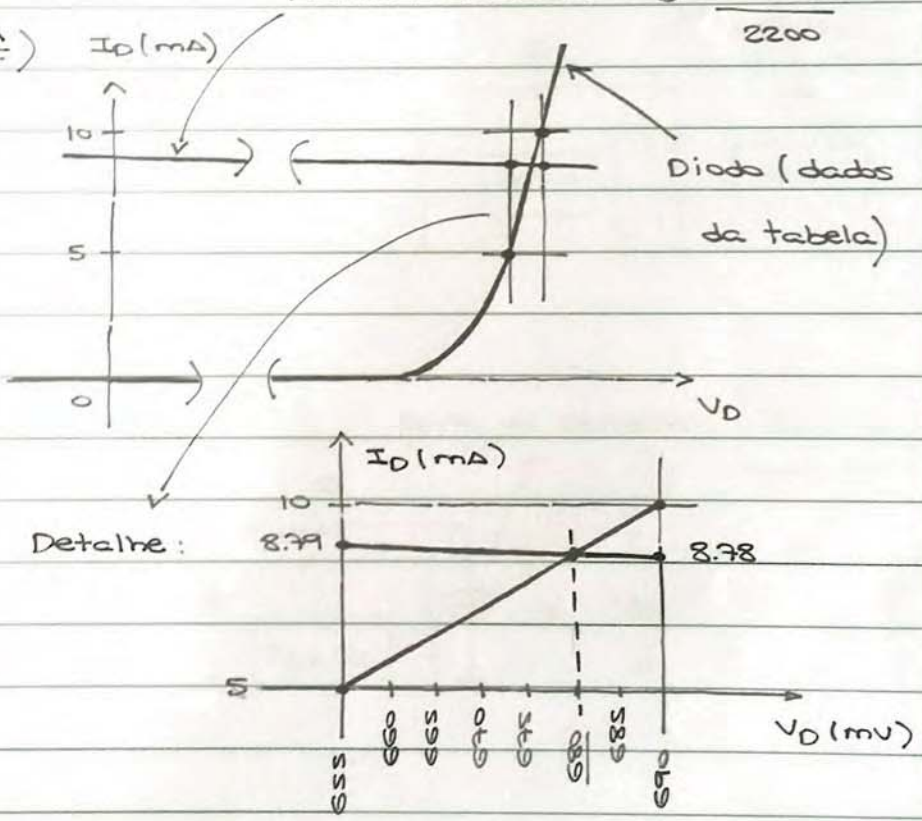 2200
I_D (mA)
10
5
0
V_D
Diodo (dados
da tabela)
Detalhe:
I_D (mA)
10
8.79
8.78
5
655
660
665
670
675
680
685
690
V_D (mV)